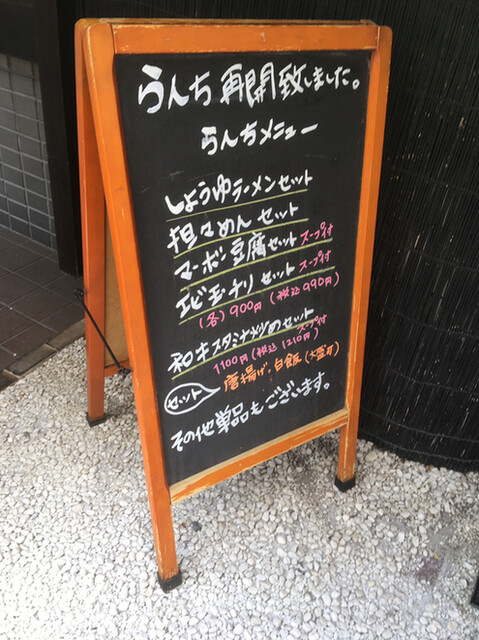 らんち再開致しました。
らんちメニュー
しょうゆラーメンセット
担々めんセット
マーボー豆腐セット スープ付
エビ玉チリセット スープ付
(各)900円(税込990円)
和牛スタミナ炒めセット
スープ付
1100円(税込1210円)
セット 唐揚げ、白飯(大盛可)
その他単品もございます。